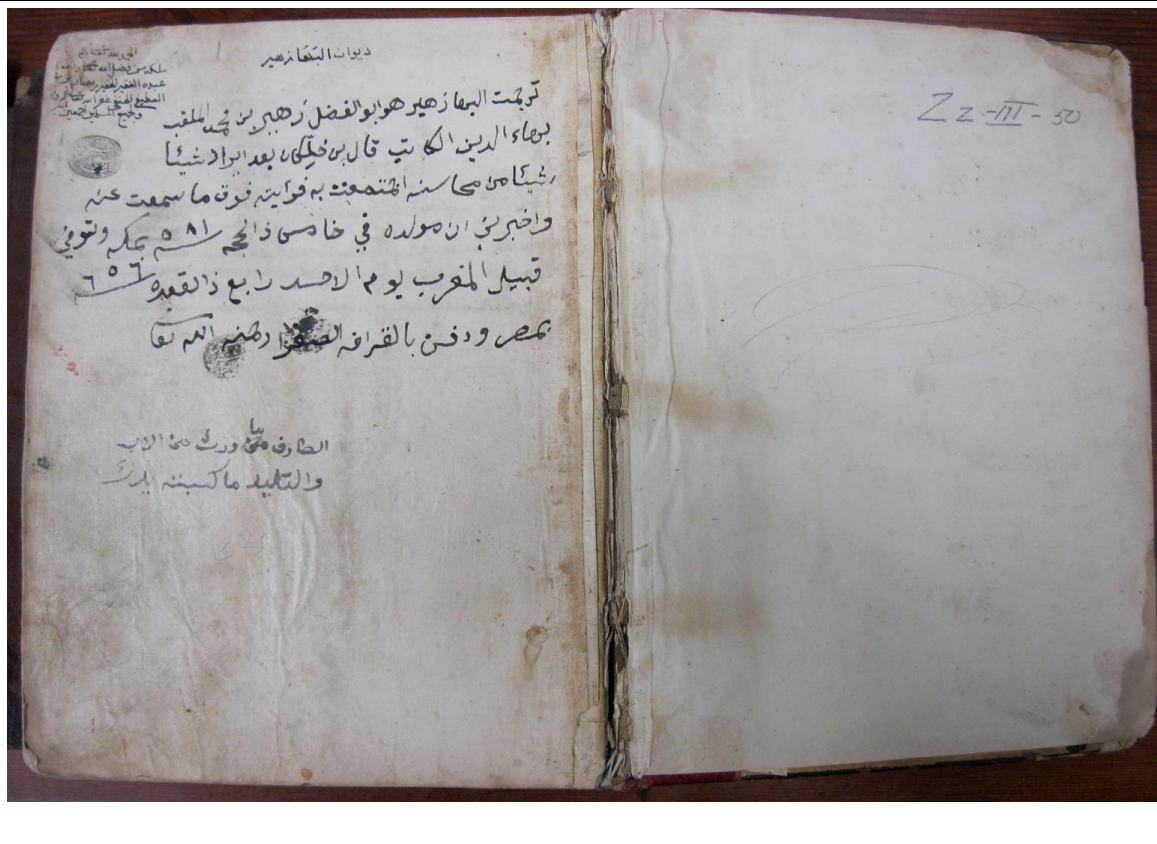 ديوان البها زهير
الحمد لله تعالى
ملكه من فضل الله تعالى
عبده الفقير
وجميع المسلمين اجمعين
ترجمت البها زهير هو ابو الفضل زهير بن محمد الملقب
بهاء الدين الكاتب قال بن خلكان بعد ايراد شيئا
شيئا من محاسنه اجتمعت به فرايته فوق ما سمعت عنه
واخبرني ان مولده في خامس ذالحجه سنه ٥٨١ بمكه وتوفي
قبيل المغرب يوم الاحد رابع ذالقعده سنه ٦٥٦
بمصر ودفن بالقرافه الصغرا رحمه الله تعا
الطارف ما ورث من الاب
والتليد ما كسبته يدك
Zz-III-50